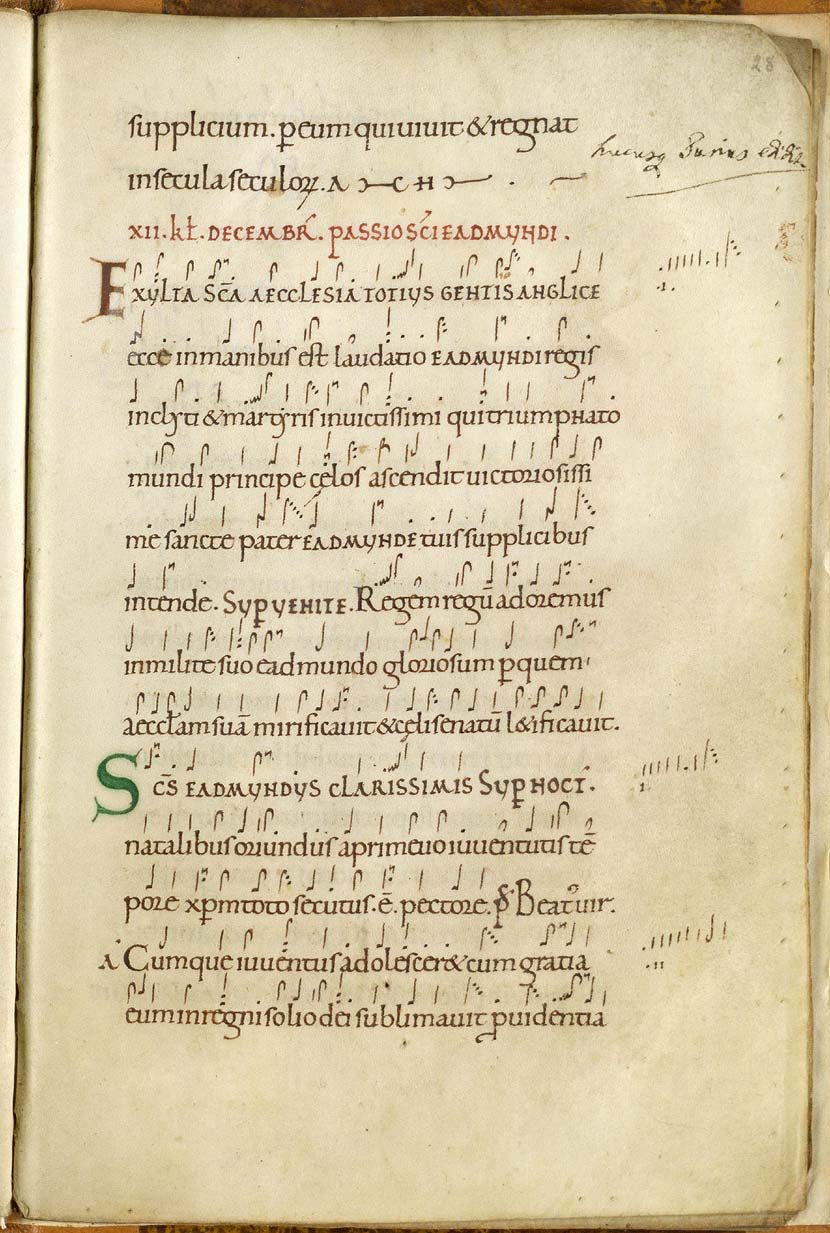 28
supplicium. ꝑ eum qui uiuit & regnat
in secula seculoꝝ. A M E N
XII. kł. DECEMBR̄. PASSIO SC̄I EADMUNDI.
EXULTA SC̄A AECCLESIA TOTIUS GENTIS ANGLICE
ecce in manibus est laudatio EADMUNDI regis
inclyti & martyris inuictissimi qui triumphato
mundi principe cęlos ascendit uictoriosissi
me sancte pater EADMUNDE tuis supplicibus
intende. SUPUENITE. Regem regū adoremus
in milite suo eadmundo gloriosum ꝑ quem
aeccłam suā mirificauit & cęli senatū l&ificauit.
SC̄S EADMUNDUS CLARISSIMIS SUP NOCT.
natalibus oriundus a primeuo iuuentutis tē
pore xp̄m toto secutus .ē. pectore. p̄s Beatus uir.
A Cumque iuuentus adolescer& cum gratia
eum in regni solio dei sublimauit ꝓuidentia